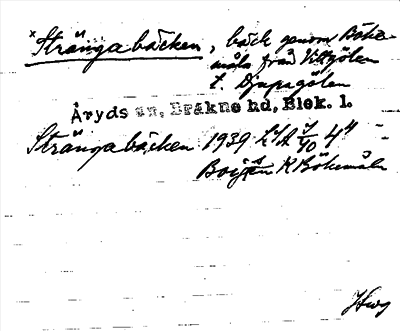 × Strängabäcken, bäck genom Böke-
måla från Vitgölen
t. Djupagölen
Åryds sn, Bräkne hd, Blek. l.
Strängabäcken 1939 4"
K Bökemåla